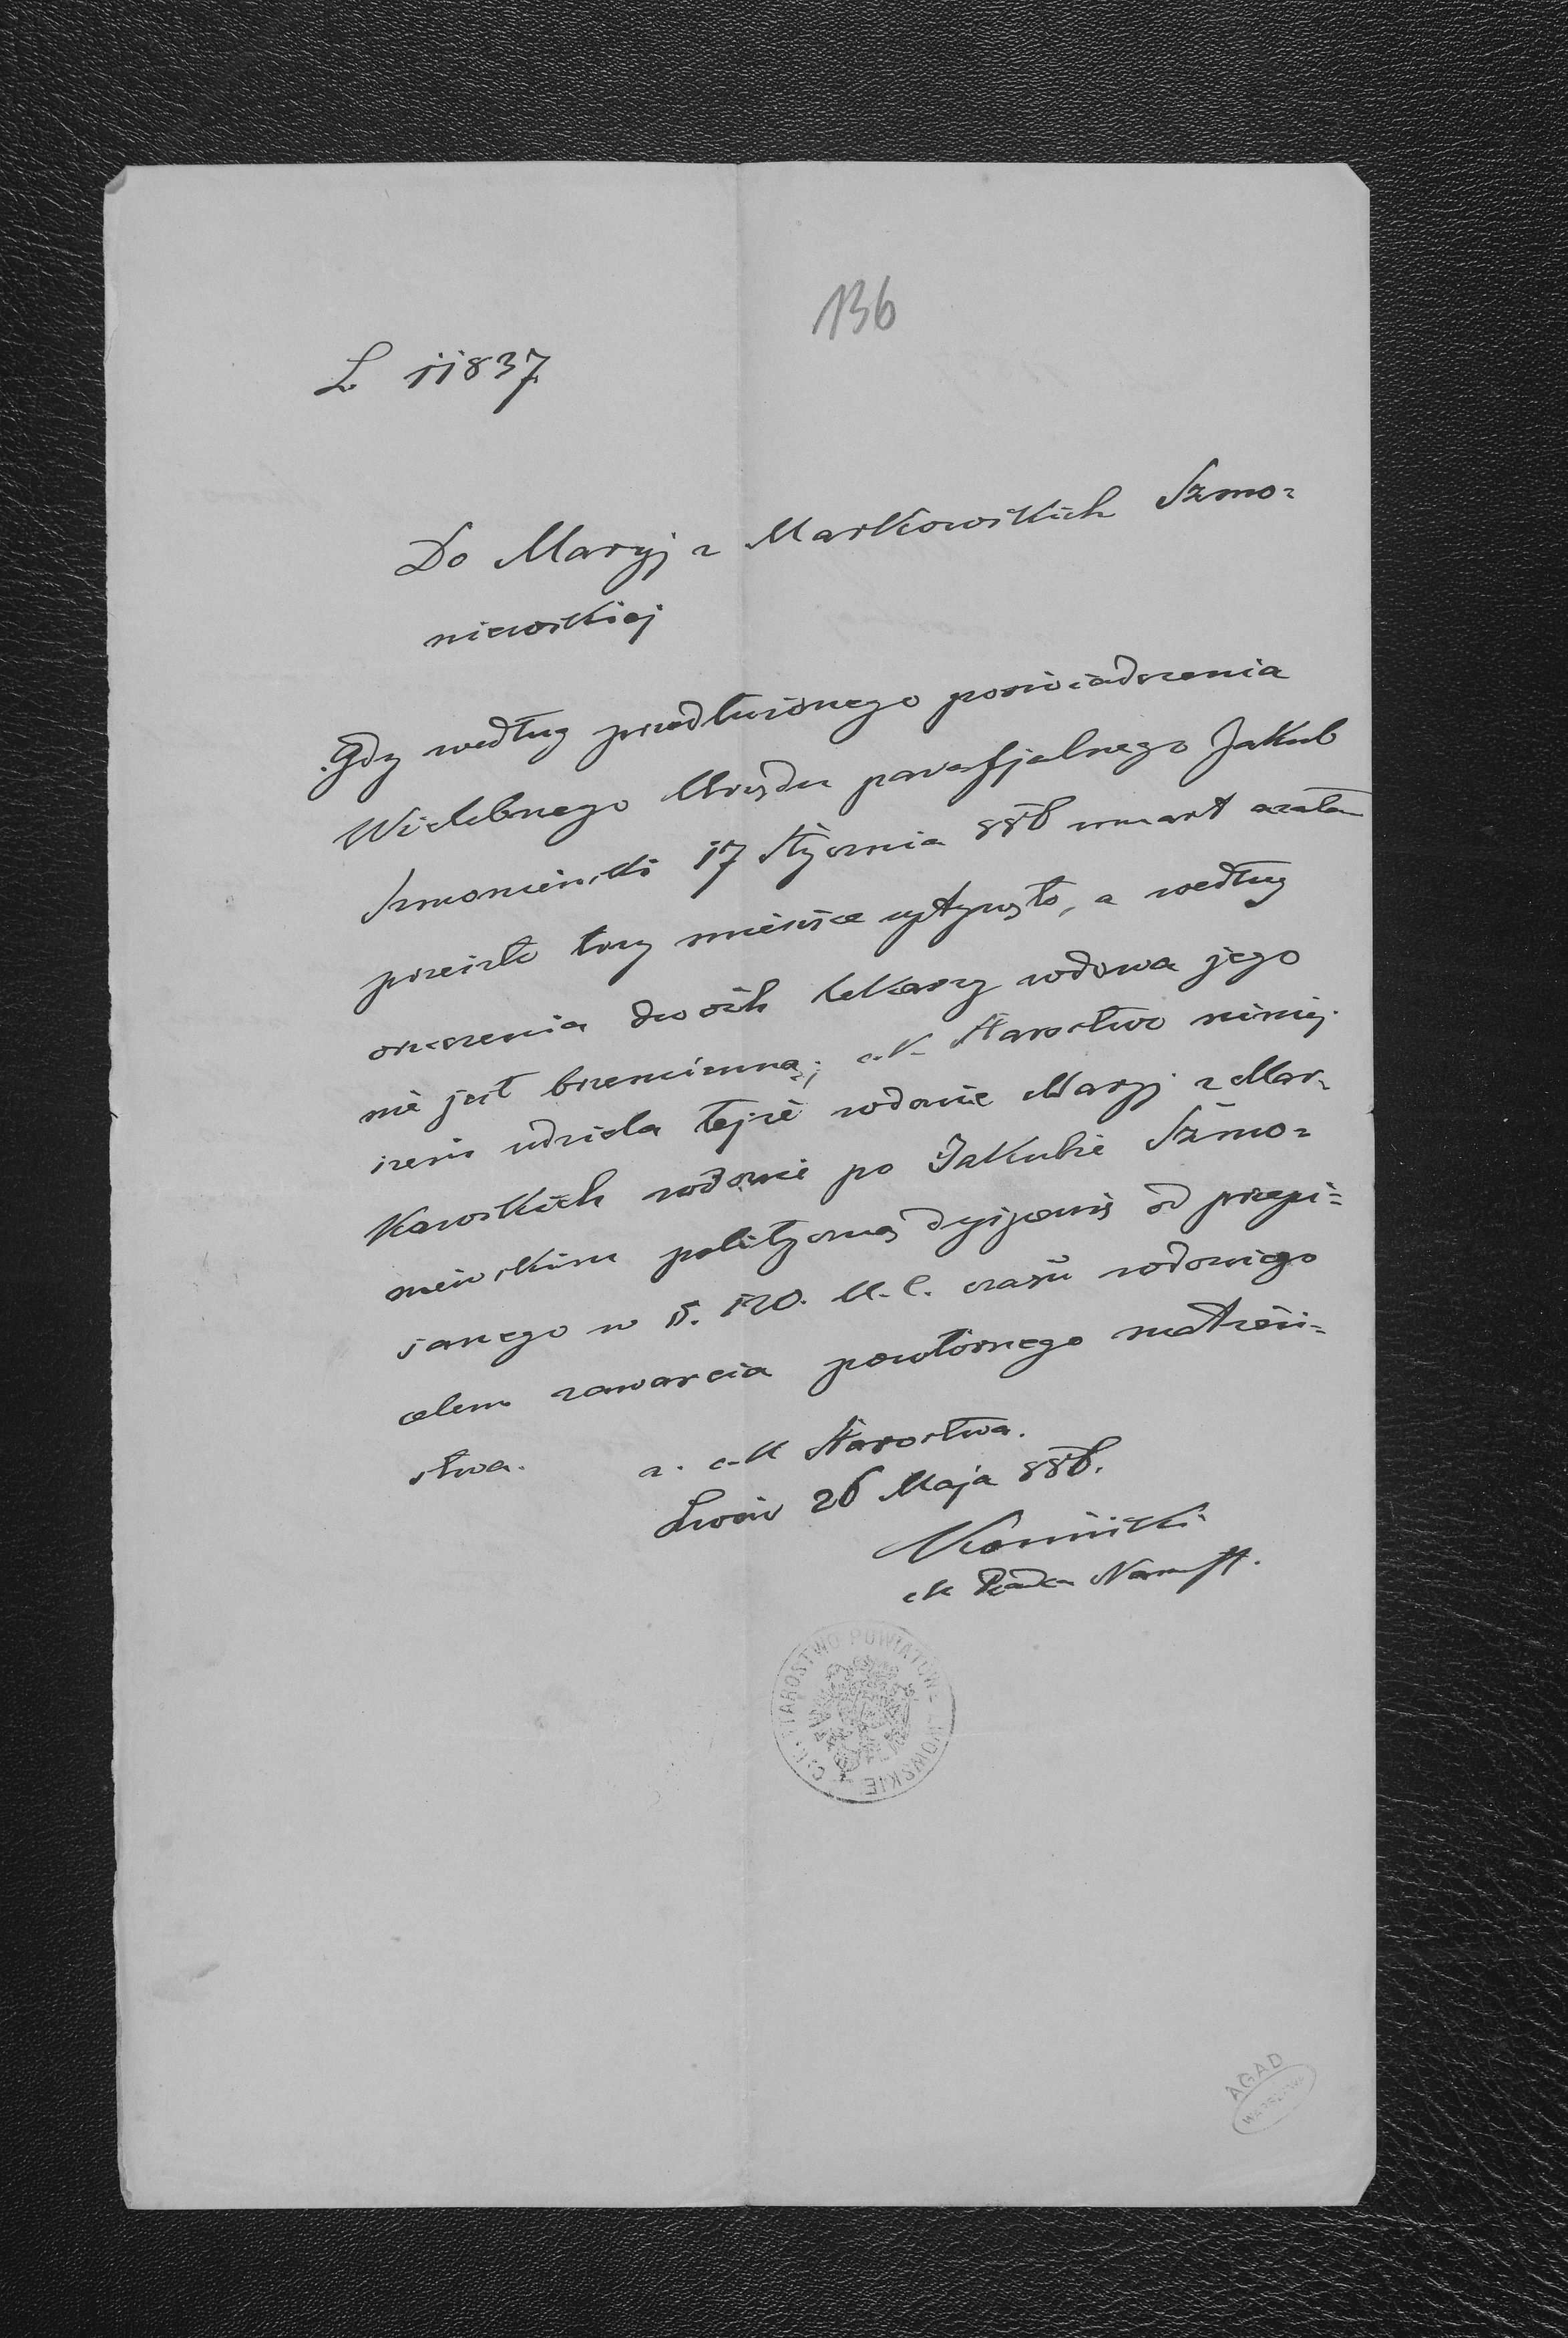 136
L 11837
Do Maryj z Markowskich Szmo-
niewskiej
Gdy według przedłożonego poświadczenia
Wielebnego Urzędu parafijalnego Jakub
17 Stycznia 886 umarł azatem
przeszło trzy miesiące upłynęło, a według
orzeczenia dwóch lekarzy wdowa jego
nie jest brzemienną; c.k. Starostwo niniej-
szem udziela tejże wdowie Maryj z Mar-
kowskich wdowie po Jakubie Szmo-
niewskim polityczną dyspensę od przepi-
sanego w §. 120. U. C. czasu wdowiego
celem zawarcia powtórnego małżeń-
stwa.
z. c.k Starostwa.
Lwów 26 Maja 886.
ck Radca Namst.
C. K. STAROSTWO POWIATOWE LWOWSKIE
AGAD
WARSZAWA